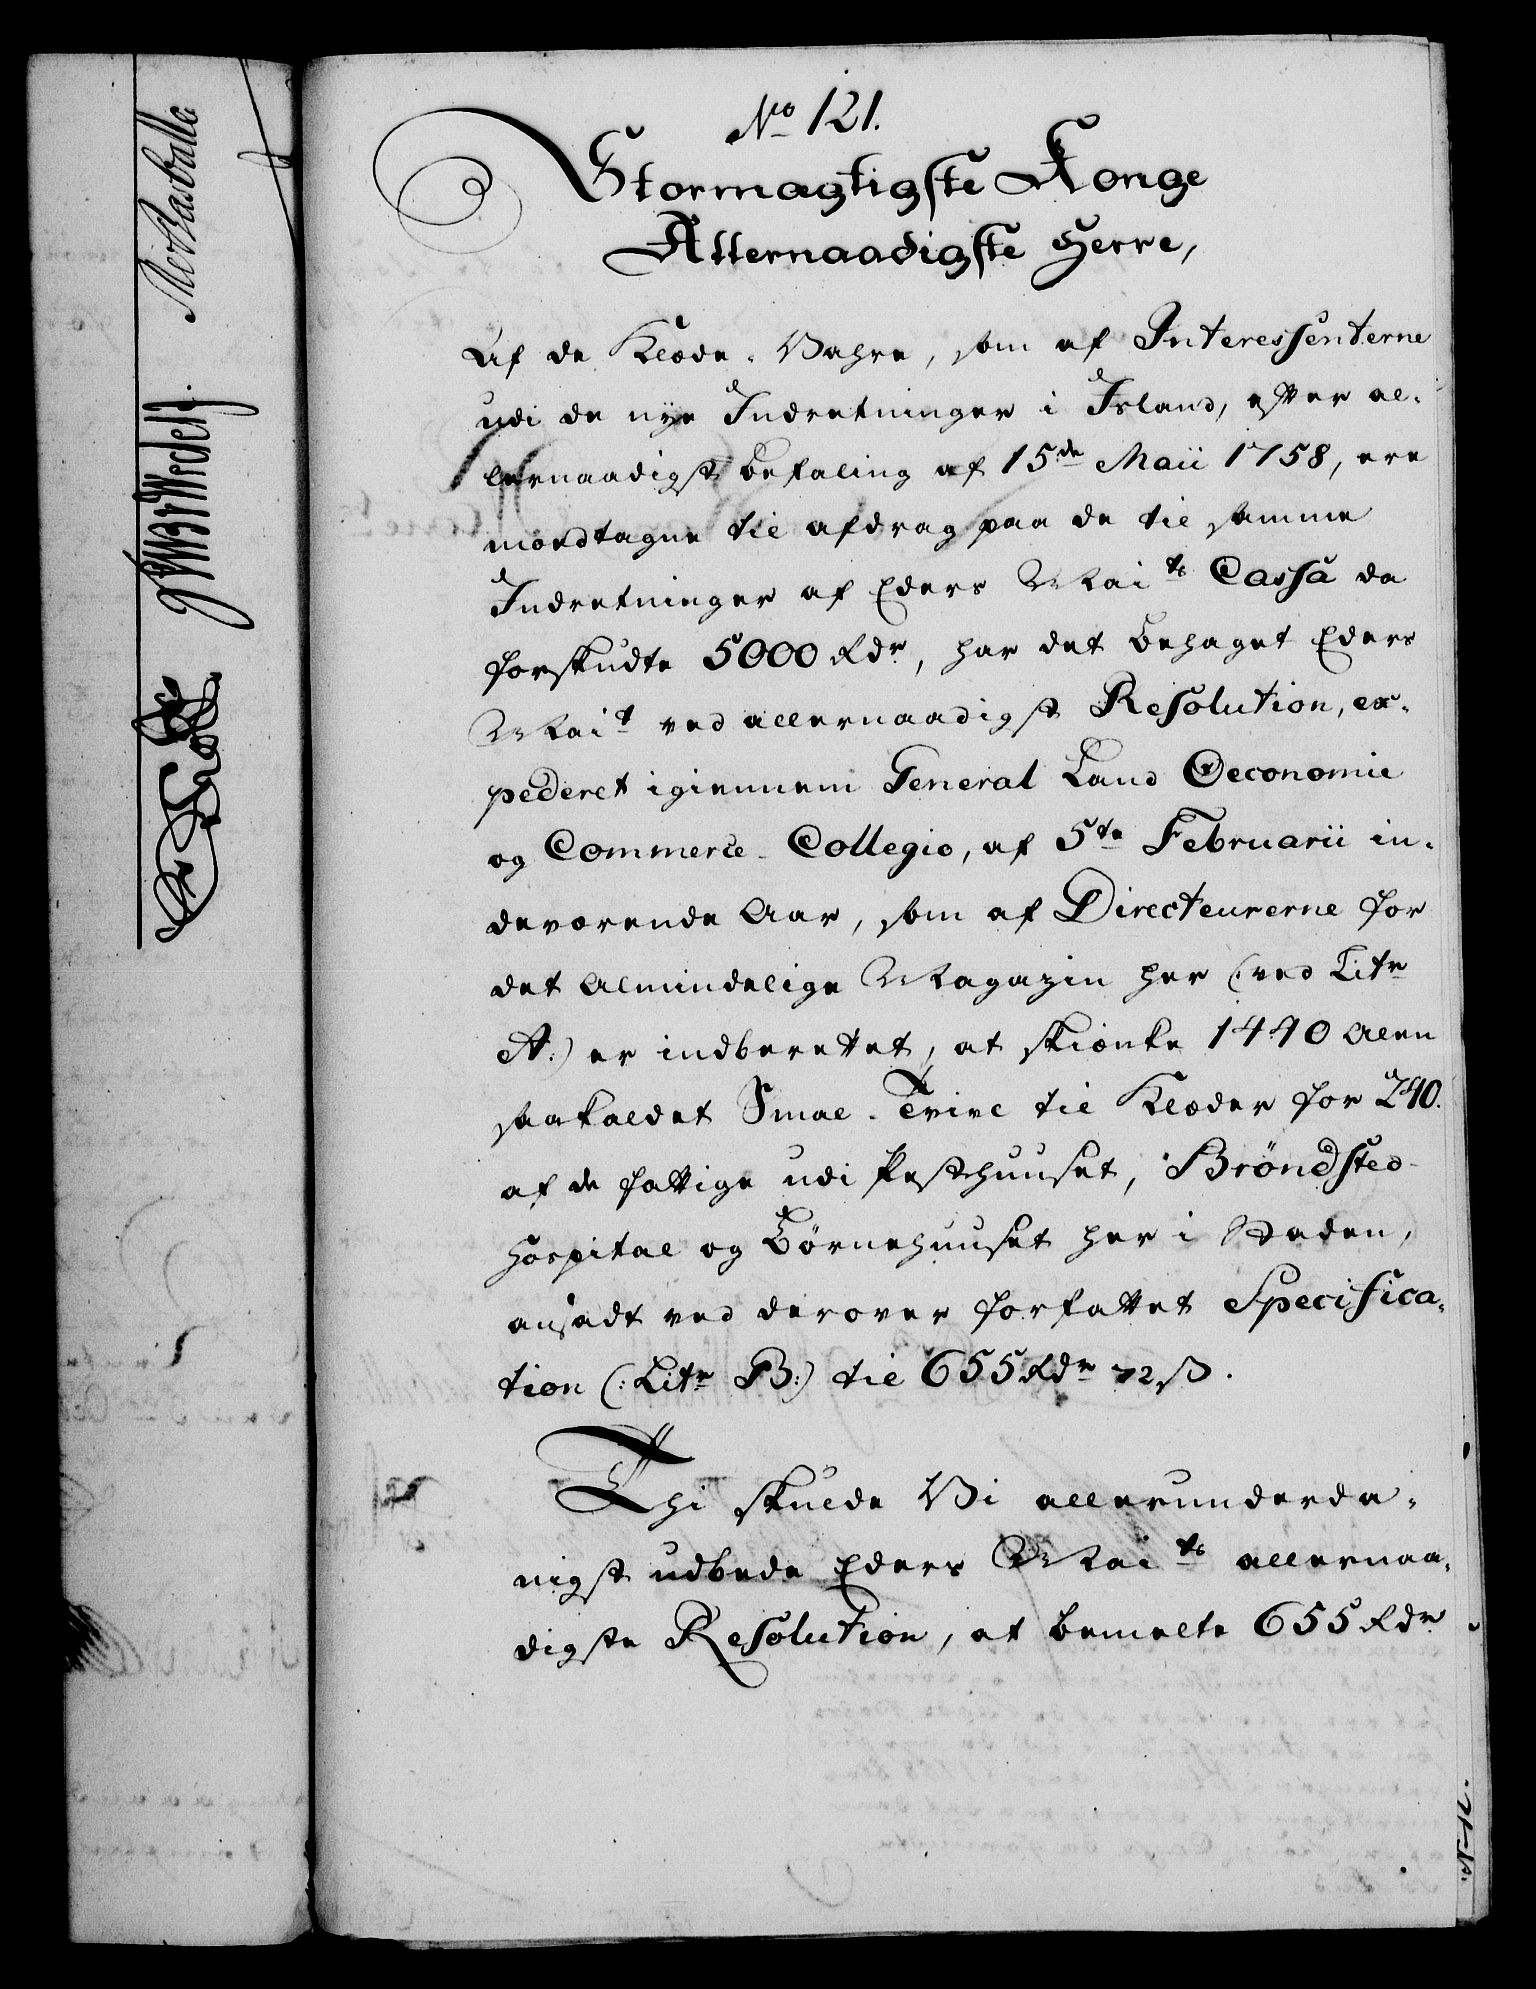 No 121.
Stormægtigste Konge
Allernaadigste Herre,
Af de Klæde-Vahre, som af Interessenterne
udi de nye Indretninger i Island, efter al-
lernaadigst befaling af 15de Maii 1758, ere
modtagne til afdrag paa de til samme
Indretninger af Eders Maits Cassa da
forskudte 5000 Rdr, har det behaget Eders
Mait ved allernaadigst Resolution, ex-
pederet igiennem General Land Oeconomie
og Commerce-Collegio, af 5te Februarii in-
deværende Aar, som af Directeurerne for
det Almindelige Magazin her (:ved Litr
A:) er indberettet, at skiænke 1440 Alen
saakaldet Smal-Trive til Klæder for 240.
af de fattige udi Pesthuuset, Bröndsted-
Hospital og Börnehuuset her i Staden,
ansadt ved derover forfattet Specifica-
tion (:Litr B:) til 655 Rdr 72 ß.
Thi skulde Vi allerunderda-
nigst udbede Eders Maits allernaa-
digste Resolution, at bemelte 655 Rdr